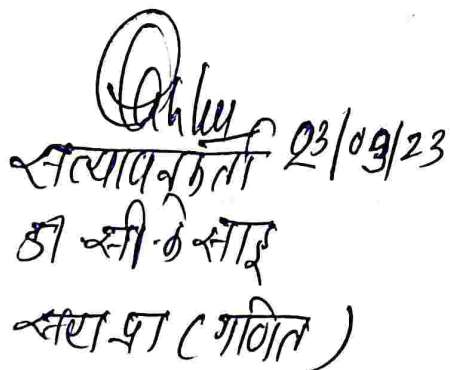 सत्यापनकर्ता 23/09/23
डॉ सी के साहू
सहा प्रा (गणित)